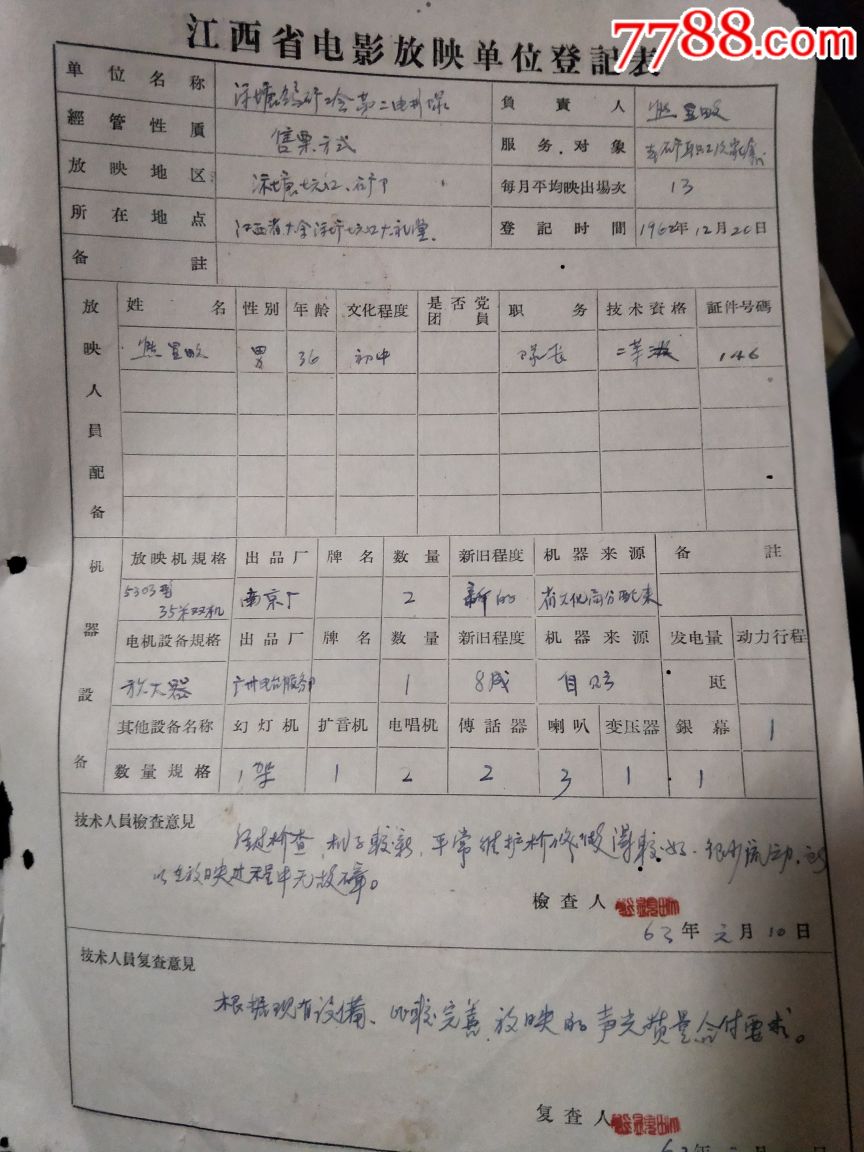 7788.com
江西省电影放映单位登記表
单位名称 負責人
經管性質 售票方式 服务对象
放映地区 每月平均映出場次 13
所在地点 江西省大余 坑口大礼堂 登記时間 1962年12月26日
备註
放映人員配备
姓名 性別 年龄 文化程度 是否党团員 职务 技术資格 証件号碼
熊 男 36 初中 队长 二 146
机器設备
放映机規格 出品厂 牌名 数量 新旧程度 机器来源 备註
5303型 35米双机 南京厂 2 新的 省文化局分配来
电机設备規格 出品厂 牌名 数量 新旧程度 机器来源 发电量 动力行程
放大器 广州电台服务部 1 8成 自 瓩
其他設备名称 幻灯机 扩音机 电唱机 傳話器 喇叭 变压器 銀幕 1
数量規格 1架 1 2 2 3 1 1
技术人員檢查意見
经过检查,机子较新,平常维护检修做得较好,很少流动,所
以在放映过程中无故障。
檢查人
63年元月10日
技术人員复查意見
根据现有设备、比较完善,放映的声光质量合付要求。
复查人
63年元月